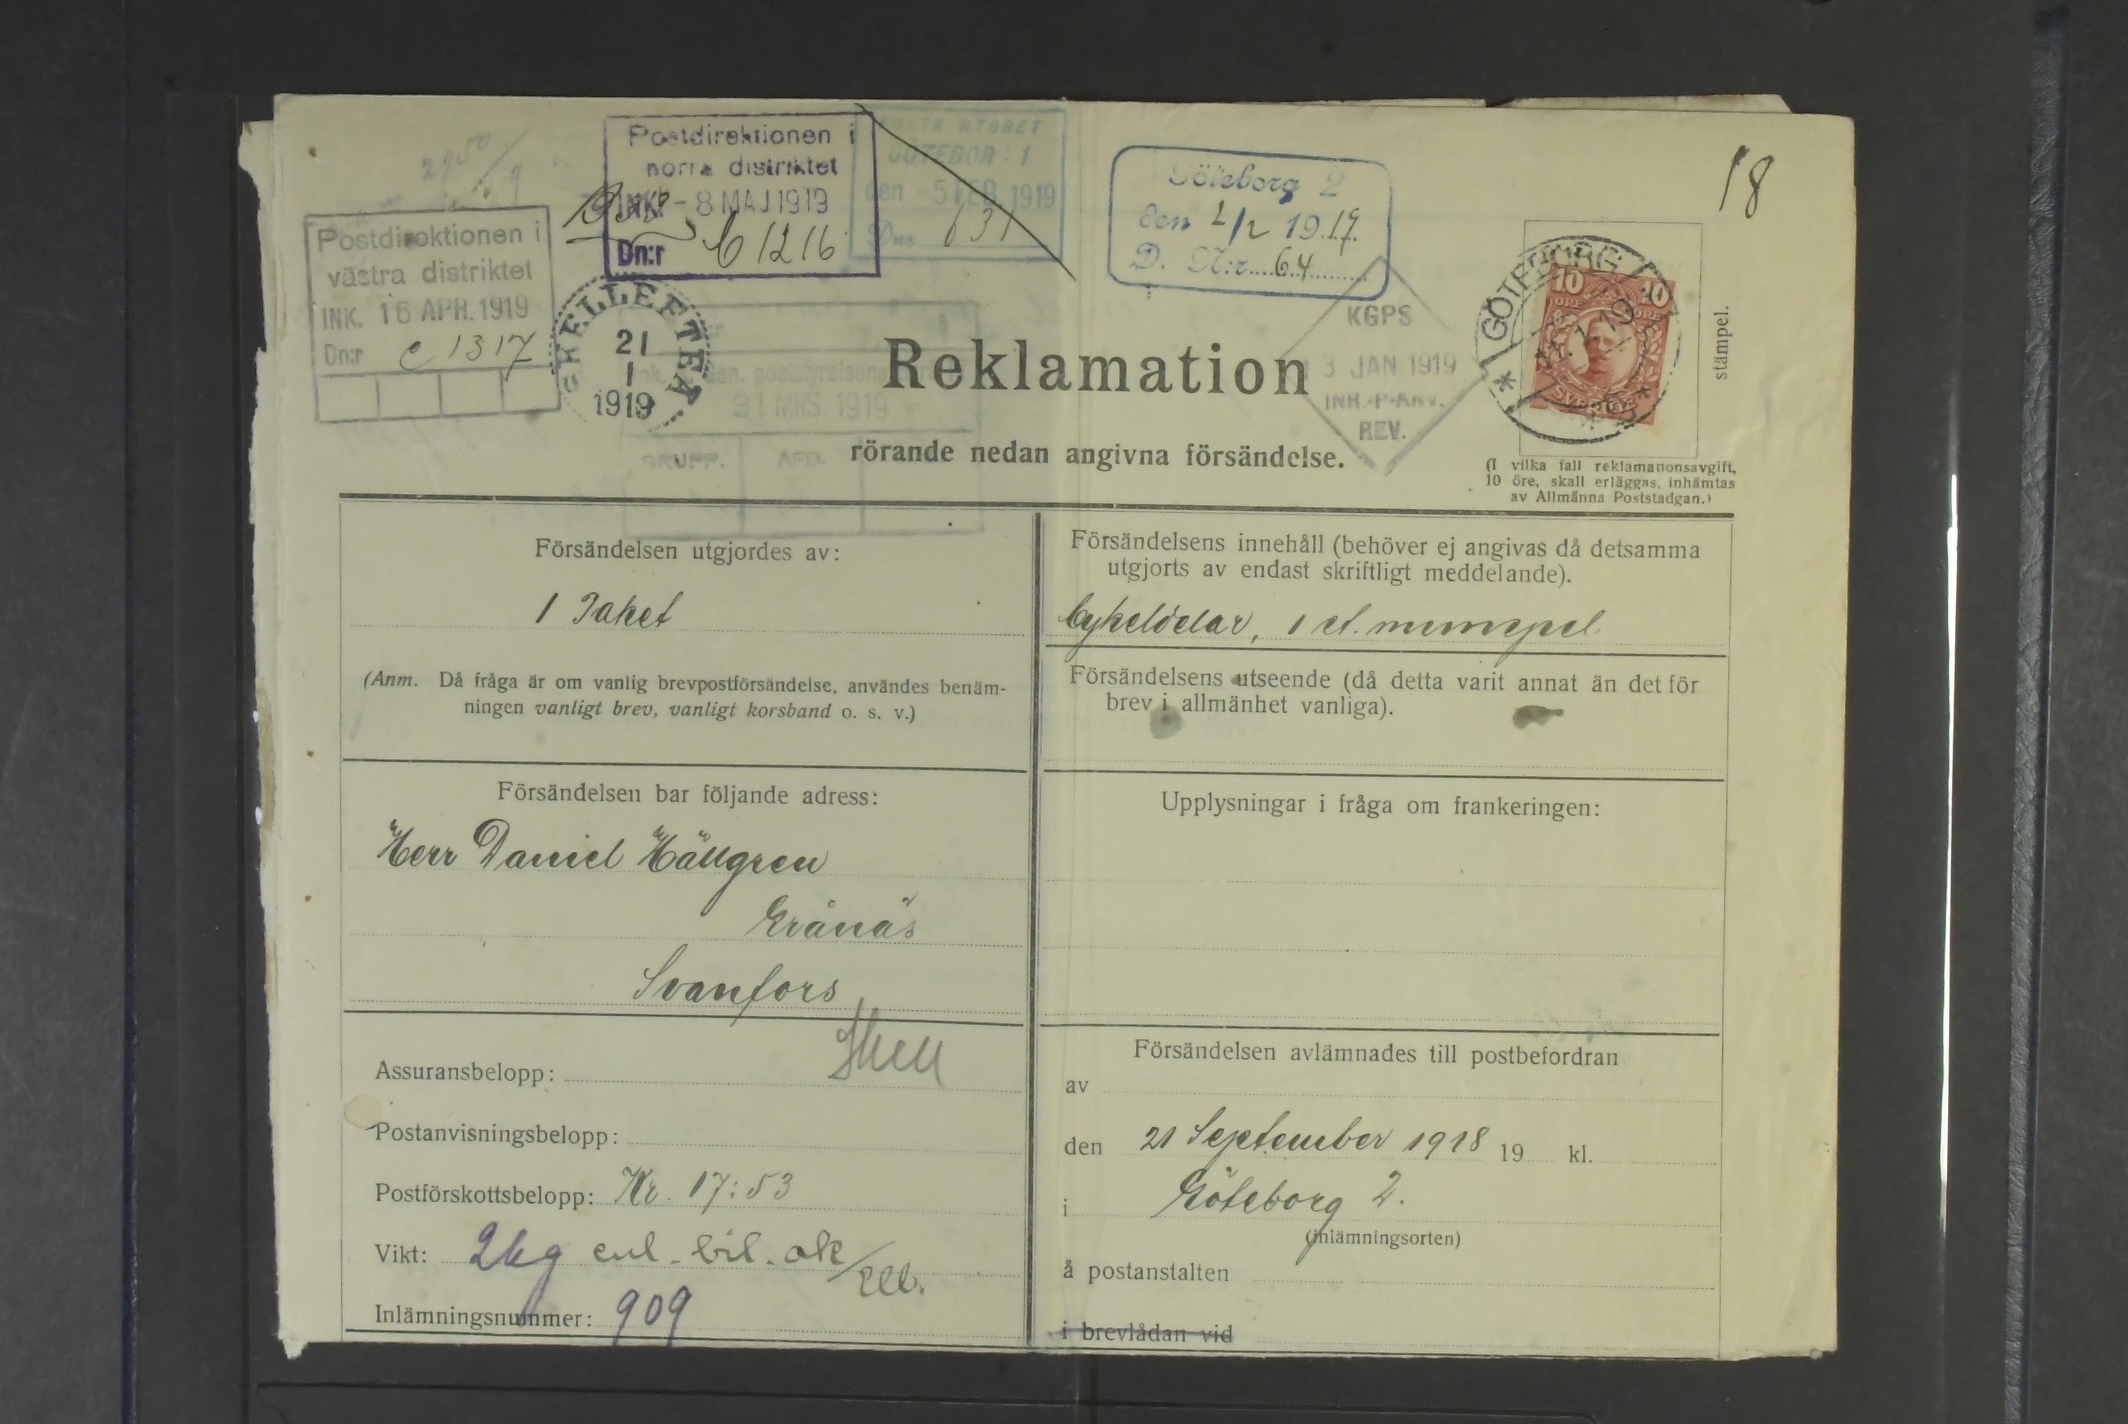 18
Postdirektionen i
norra distriktet
INK. - 8 MAJ 1919
Dn:r C 1216
GÖTEBOR: 1
den 5 FEB 1919
Dnr 631
Göteborg 2
den 2/2 1919
D. N:r 64
Postdirektionen i
västra distriktet
INK. 16 APR. 1919
Dn:r C 1317
SKELLEFTEÅ
21
1
1919
31 MRS. 1919
GRUPP. AFD.
KGPS
13 JAN 1919
INR.-P-ANV.
REV.
GÖTEBORG
10 10
ÖRE ÖRE
SVERIGE
stämpel.
Reklamation
rörande nedan angivna försändelse.
(I vilka fall reklamationsavgift,
10 öre, skall erläggas, inhämtas
av Allmänna Poststadgan.)
Försändelsen utgjordes av:
1 Paket
(Anm. Då fråga är om vanlig brevpostförsändelse, användes benäm-
ningen vanligt brev, vanligt korsband o. s. v.)
Försändelsens innehåll (behöver ej angivas då detsamma
utgjorts av endast skriftligt meddelande).
Cykeldelar, 1 st. munspel.
Försändelsens utseende (då detta varit annat än det för
brev i allmänhet vanliga).
Försändelsen bar följande adress:
Herr Daniel Hällgren
Granäs
Svanfors
Upplysningar i fråga om frankeringen:
Assuransbelopp:
Postanvisningsbelopp:
Postförskottsbelopp: Kr. 17:53
Vikt: 2kg enl. bil. ak
Inlämningsnummer: 909
Försändelsen avlämnades till postbefordran
av
den 21 September 1918 19 kl.
i Göteborg 2.
(inlämningsorten)
å postanstalten
i brevlådan vid